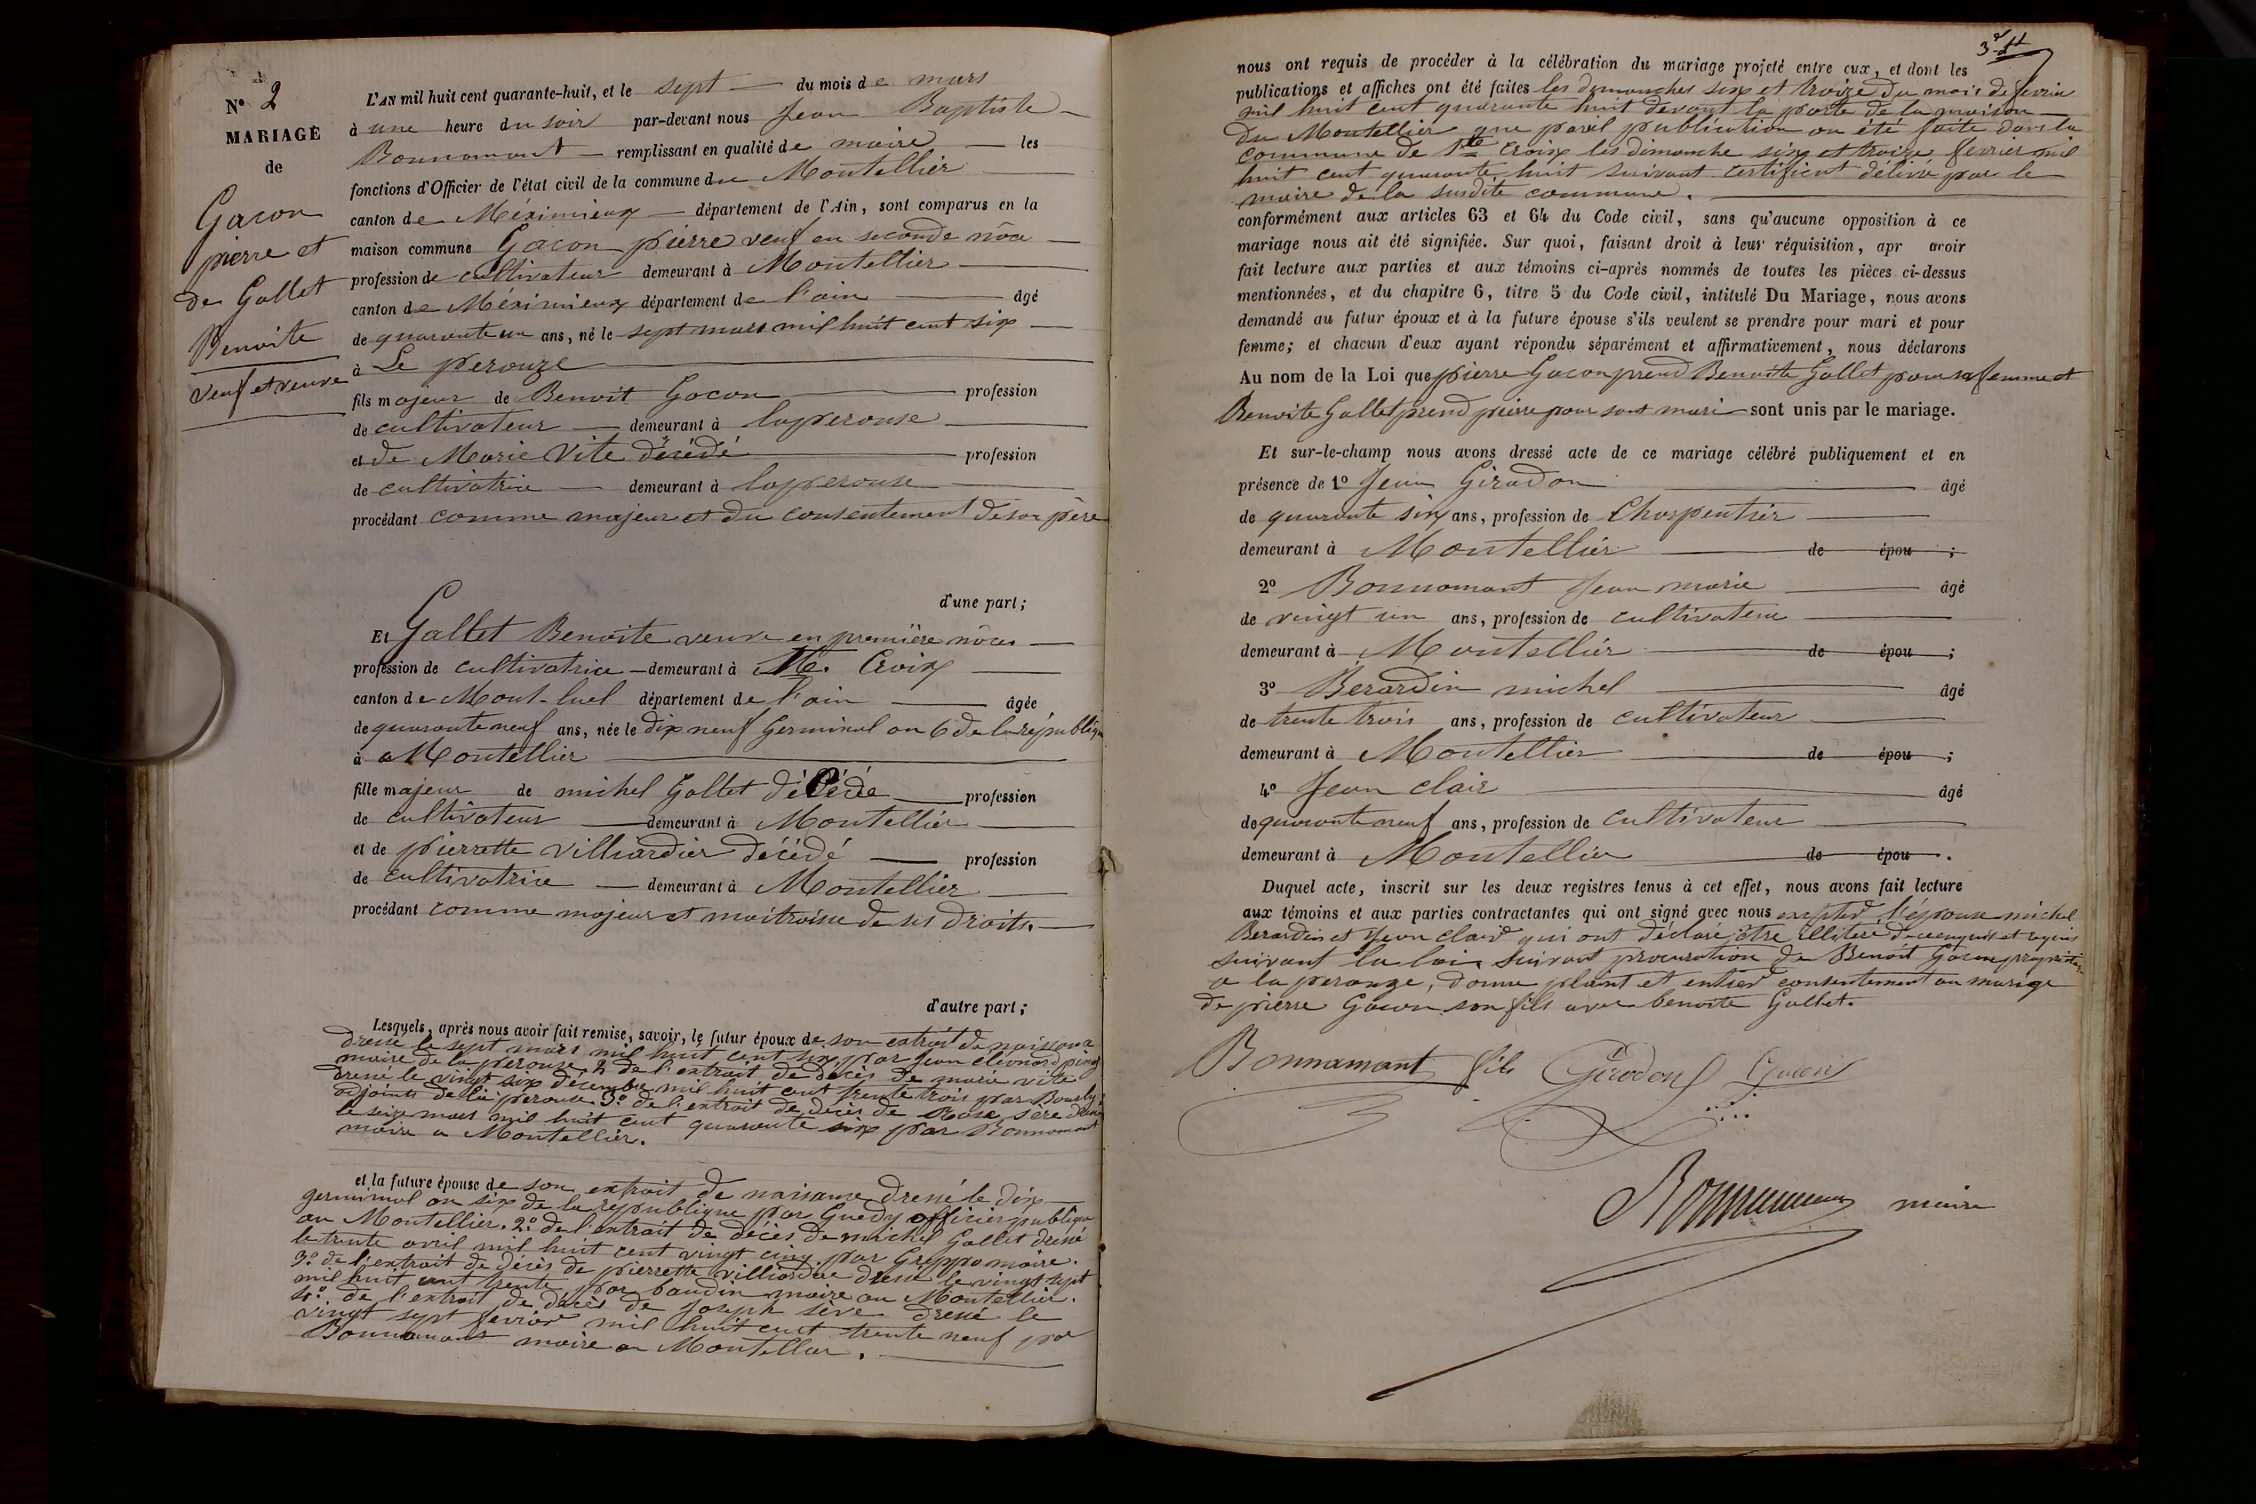 N° 2
MARIAGE
de
Gacon
pierre et
de Gallet
Benoite
veuf et veuve
L'AN mil huit cent quarante-huit, et le sept du mois de mars
à une heure du soir par-devant nous Jean Baptiste
Bonnamant remplissant en qualité de maire les
fonctions d'Officier de l'état civil de la commune du Montellier
canton de Méximieux département de l'Ain, sont comparus en la
maison commune Gacon pierre veuf en seconde nôce
profession de cultivateur demeurant à Montellier
canton de Méximieux département de l'ain âgé
de quarante un ans, né le sept mars mil huit cent six
à Le perouze
fils majeur de Benoit Gacon profession
de cultivateur demeurant à laperouse
et de Marie Vite décédé profession
de cultivatrice demeurant à laperouse
procédant comme majeur et du consentement de son père
d'une part;
Et Gallet Benoite veuve en première nôces
profession de cultivatrice demeurant à Ste. Croix
canton de Mont-luel département de l'ain âgée
de quarante neuf ans, née le dix neuf Germinal an 6 de la républiqu
à a Montellier
fille majeur de michel Gallet décédé profession
de cultivateur demeurant à Montellier
et de pierrette villiardier décédé profession
de cultivatrice demeurant à Montellier
procédant comme majeur et maitraisse de ses droits.
d'autre part;
Lesquels, après nous avoir fait remise, savoir, le futur époux de son extrait de naissance
dressé le sept mars mil huit cent six par Jean éléonard
maire de la perouse. 2° de l'extrait de décès de marie vite
dressé le vingt six décembre mil huit cent trente trois par
adjoint de la perouse. 3° de l'extrait de décès de Rose sère dressé
le seize mars mil huit cent quarante six par Bonnamant
maire a Montellier.
et la future épouse de son extrait de naisanse dressé le dix
germinal an six de la république par Guedy officier publique
au Montellier. 2° de l'extrait de décès de michel Gallet dressé
le trente avril mil huit cent vingt cinq par Greppo maire.
3° de l'extrait de décès de pierrette villiardière dressé le vingt sept
mil huit cent trente par baudin maire au Montellier.
4° de l'extrait de décès de Joseph sève dressé le
vingt sept fevrier mil huit cent trente neuf par
Bonnamant maire a Montellier.
nous ont requis de procéder à la célébration du mariage projeté entre eux, et dont les
publications et affiches ont été faites les dimanches six et treize du mois de fevrier
mil huit cent quarante huit devant la porte de la maison
du Montellier que pareil publication on été faite dans la
commune de Ste Croix les dimanche six et treize fevrier mil
huit cent quarante huit suivant certificat délivré par le
maire de la susdite commune.
conformément aux articles 63 et 64 du Code civil, sans qu'aucune opposition à ce
mariage nous ait été signifiée. Sur quoi, faisant droit à leur réquisition, apr avoir
fait lecture aux parties et aux témoins ci-après nommés de toutes les pièces ci-dessus
mentionnées, et du chapitre 6, titre 5 du Code civil, intitulé Du Mariage, nous avons
demandé au futur époux et à la future épouse s'ils veulent se prendre pour mari et pour
femme; et chacun d'eux ayant répondu séparément et affirmativement, nous déclarons
Au nom de la Loi que pierre Gacon prend Benoite Gallet pour sa femme et
Benoite Gallet prend pierre pour sont mari sont unis par le mariage.
Et sur-le-champ nous avons dressé acte de ce mariage célébré publiquement et en
présence de 1° Jean Giradon âgé
de quarante six ans, profession de Charpentier
demeurant à Montellier de épou ;
2° Bonnamant Jean marie âgé
de vingt un ans, profession de cultivateur
demeurant à Montellier de épou ;
3° Berardin michel âgé
de trente trois ans, profession de cultivateur
demeurant à Montellier de épou ;
4° Jean clair âgé
de quarante neuf ans, profession de cultivateur
demeurant à Montellier de épou .
Duquel acte, inscrit sur les deux registres tenus à cet effet, nous avons fait lecture
aux témoins et aux parties contractantes qui ont signé avec nous l'épouse michel
Berardin et Jean clair qui ont déclaré être illiteré de ce enquis et requis
suivant la loi. Suivant procuration de Benoit Gacon propriétaire
a la perouze, donne plaint et entier consentement au mariage
de pierre Gacon son fils avec benoite Gallet.
Bonnamant fils Girodon Gacon
Bonnamant maire